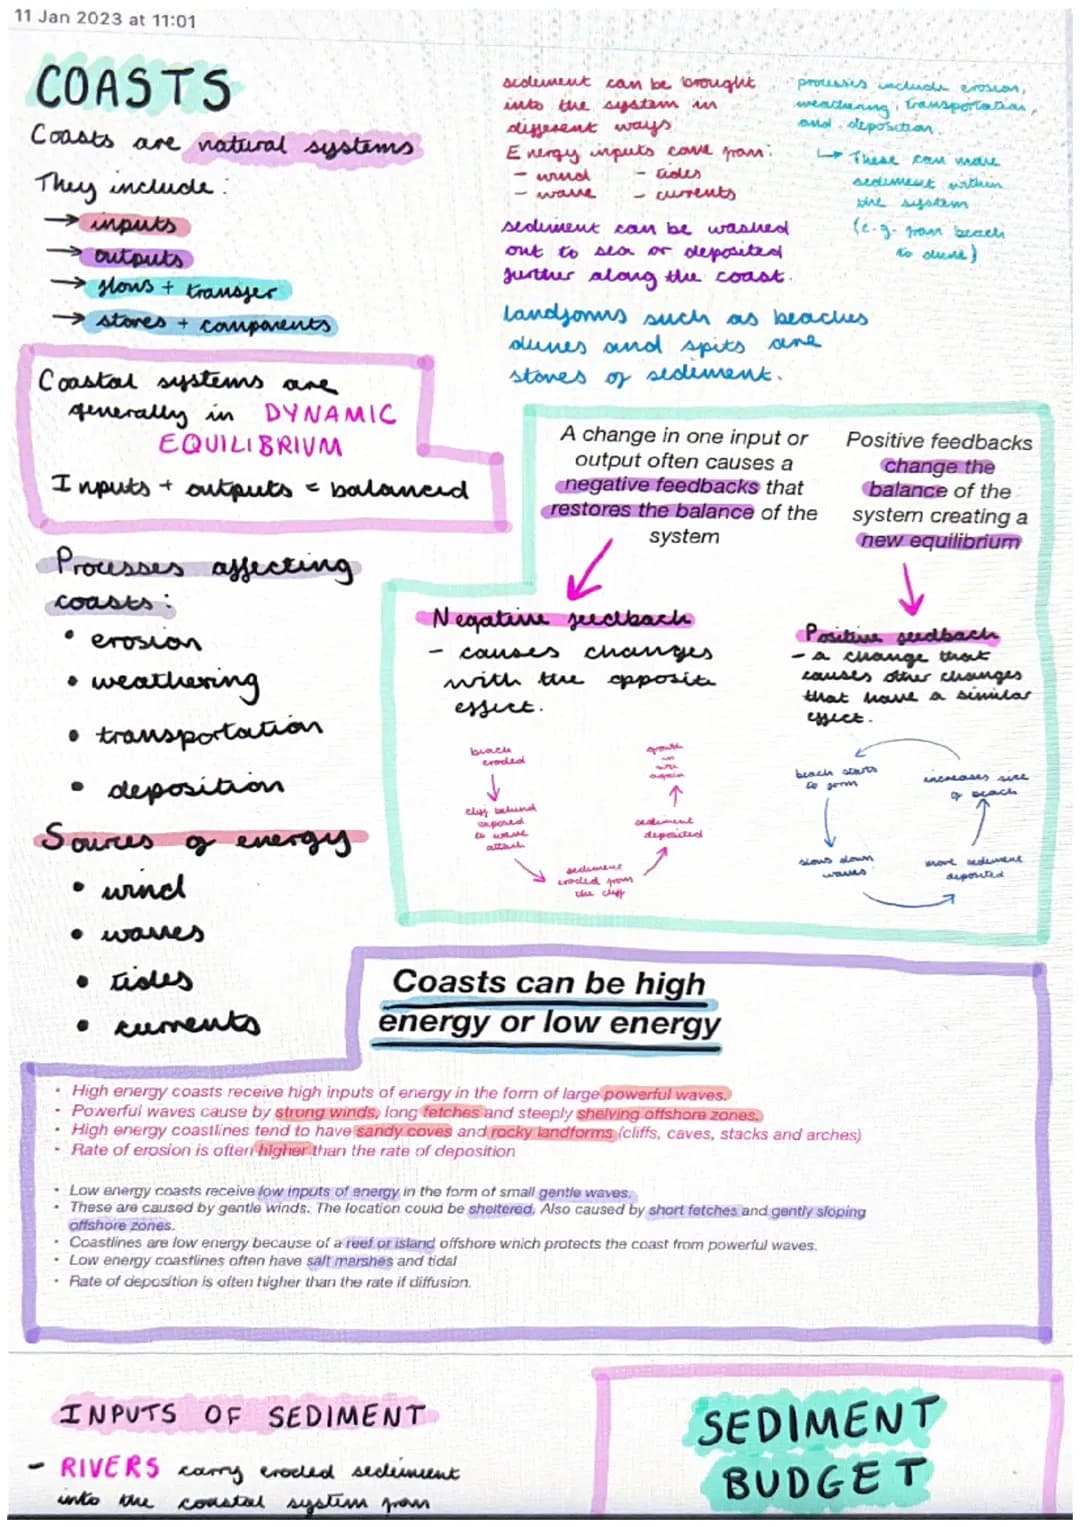 11 Jan 2023 at 11:01
COASTS
Coasts are natural systems
They include:
→ inputs
→ outputs
→ flows + transfer
→ stores + components
sediment can be brought
into the system in
different ways
Energy inputs come from:
- wind - tides
- wave - currents
sediment can be washed
out to sea or deposited
further along the coast.
landforms such as beaches
dunes and spits are
stores of sediment.
processes include erosion,
weathering, transportation,
and deposition.
↳ These can move
sediment within
the system
(e.g. from beach
to dune)
Coastal systems are
generally in DYNAMIC
EQUILIBRIUM
Inputs + outputs = balanced
A change in one input or
output often causes a
negative feedbacks that
restores the balance of the
system
Positive feedbacks
change the
balance of the
system creating a
new equilibrium
Negative feedback
- causes changes
with the opposite
effect.
beach
eroded
cliff behind
exposed
to wave
attack
sediment
eroded from
the cliff
sediment
deposited
growth
in
size
again
Positive feedback
- a change that
causes other changes
that have a similar
effect.
beach starts
to form
slows down
waves
more sediment
deposited
increases size
of beach
Processes affecting
coasts:
• erosion
• weathering
• transportation
• deposition
Sources of energy
• wind
• waves
• tides
• currents
Coasts can be high
energy or low energy
• High energy coasts receive high inputs of energy in the form of large powerful waves.
• Powerful waves cause by strong winds, long fetches and steeply shelving offshore zones.
• High energy coastlines tend to have sandy coves and rocky landforms (cliffs, caves, stacks and arches)
• Rate of erosion is often higher than the rate of deposition
• Low energy coasts receive low inputs of energy in the form of small gentle waves.
• These are caused by gentle winds. The location could be sheltered. Also caused by short fetches and gently sloping
offshore zones.
• Coastlines are low energy because of a reef or island offshore which protects the coast from powerful waves.
• Low energy coastlines often have salt marshes and tidal
• Rate of deposition is often higher than the rate if diffusion.
INPUTS OF SEDIMENT
- RIVERS carry eroded sediment
into the coastal system from
SEDIMENT
BUDGET